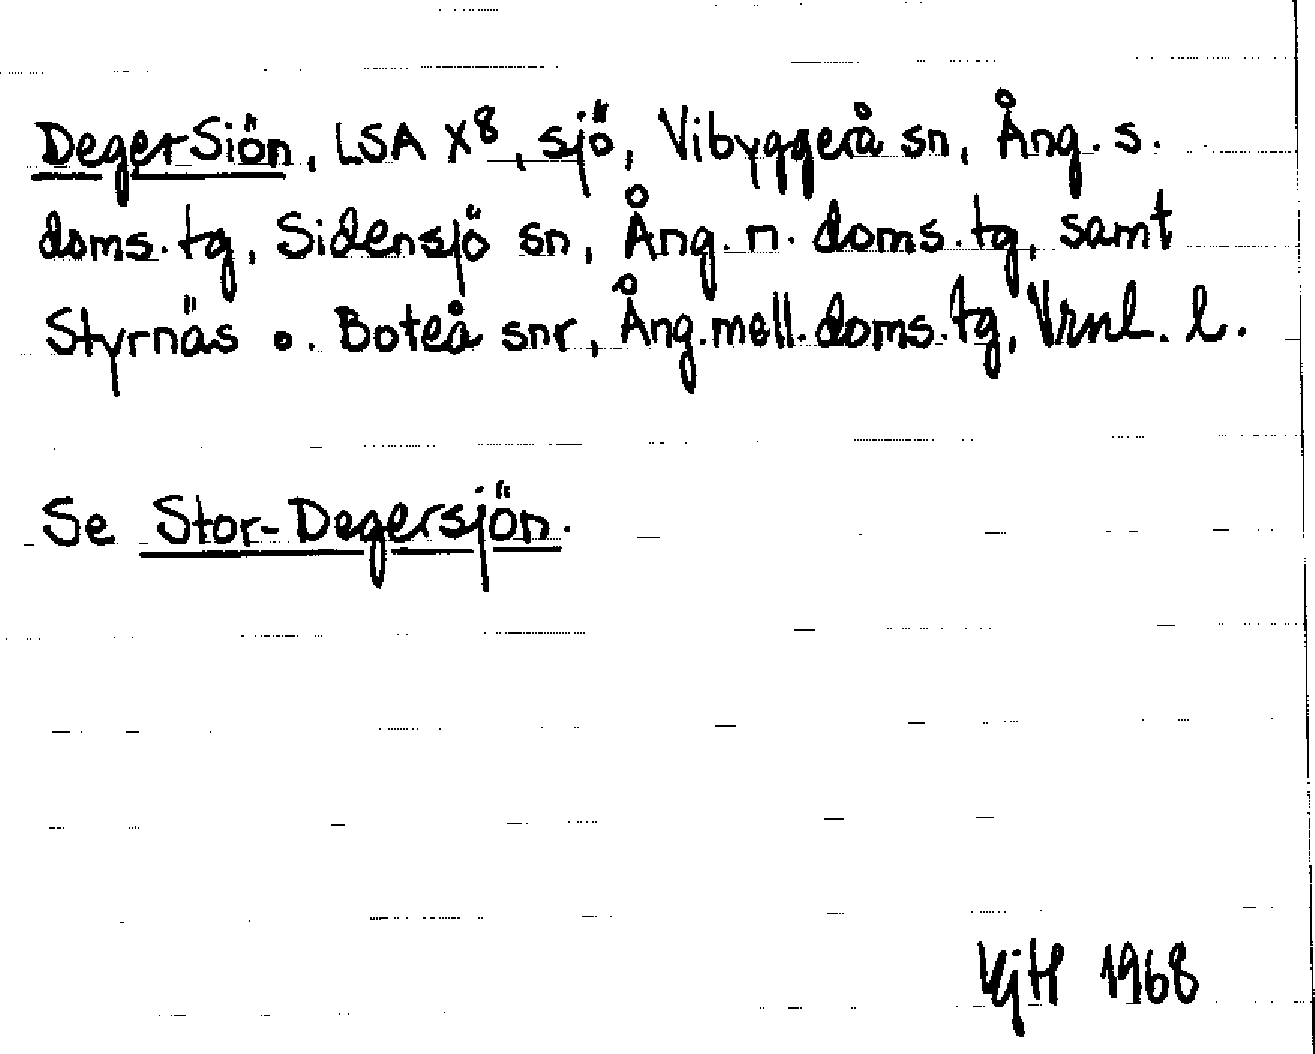 DegerSiön, LSA X8, sjö, Vibyggerå sn, Ång. s.
doms.tg, Sidensjö sn, Ång. n. doms.tg, samt
Styrnäs o. Boteå snr, Ång.mell.doms.tg, Vrnl. l.
Se Stor-Degersjön.
VjH 1968